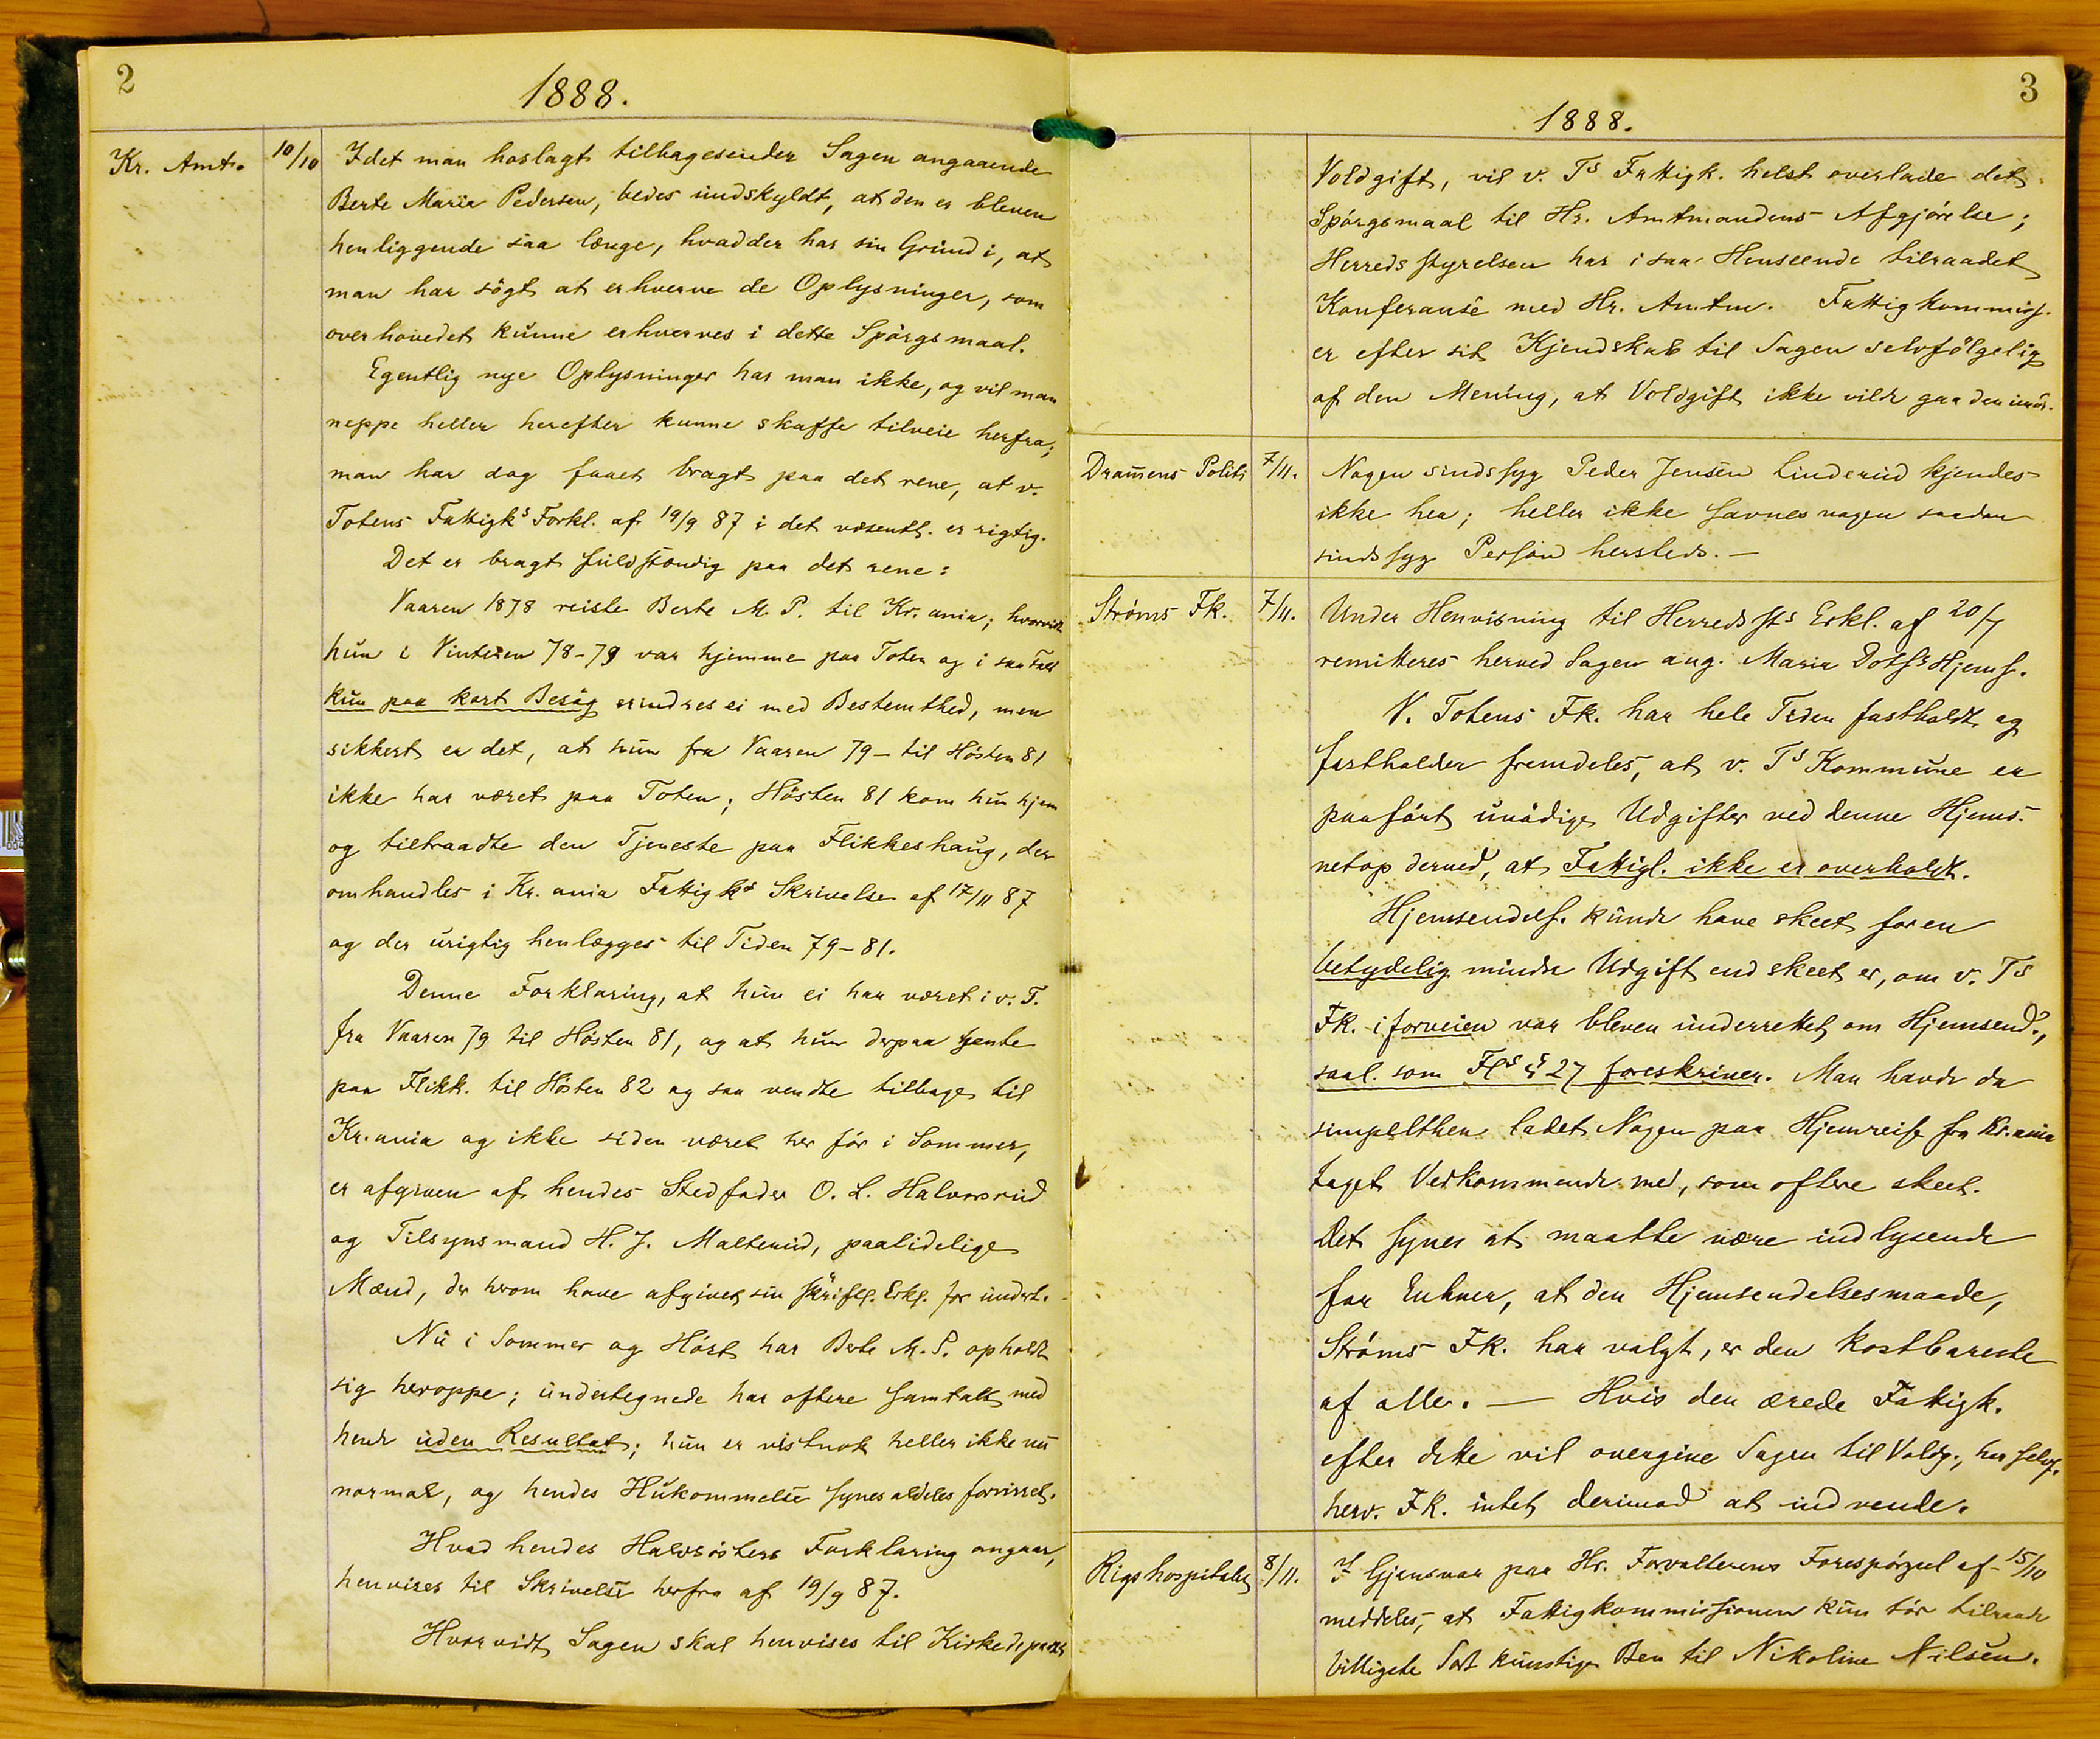 2
1888.
Kr. Amt. 10/10 Idet man hoslagt tilbagesender Sagen angaaende
Berte Maria Pedersen, bedes undskyldt, at den er bleven
henliggende saa længe, hvad der har sin Grund i, at
man har søgt at erhverve de Oplysninger, som
overhovedet kunne erhverves i dette Spørgsmaal.
Egentlig nye Oplysninger har man ikke, og vil man
neppe heller herefter kunne skaffe tilveie herfra;
man har dog faaet bragt paa det rene, at v.
Totens Fattigks Forkl. af 19/9 87 i det væsentl. er rigtig.
Det er bragt fuldstændig paa det rene:
Vaaren 1878 reiste Berte M. P. til Kr.ania; hvorvidt
hun i Vinteren 78-79 var hjemme paa Toten og i saa Fald
kun paa kort Besøg erindres ei med Bestemthed, men
sikkert er det, at hun fra Vaaren 79 - til Høsten 81
ikke har været paa Toten; Høsten 81 kom hun hjem
og tiltraadte den Tjeneste paa Flikkeshaug, der
omhandles i Kr.ania Fattigks Skrivelse af 17/11 87
og der urigtig henlægges til Tiden 79-81.
Denne Forklaring, at hun ei har været i v. T.
fra Vaaren 79 til Høsten 81, og at hun derpaa tjente
paa Flikk. til Høsten 82 og saa vendte tilbage til
Kr.ania og ikke siden været her før i Sommer,
er afgiven af hendes Stedfader O. L. Halvorsrud
og Tilsynsmand H. J. Malterud, paalidelige
Mænd, der herom have afgivet sin skriftl. Erkl. for undert.
Nu i Sommer og Høst har Berte M. P. opholdt
sig heroppe; undertegnede har oftere samtalt med
hende uden Resultat; hun er vistnok heller ikke nu
normal, og hendes Hukommelse synes aldeles forvirret.
Hvad hendes Halvsøsters Forklaring angaar,
henvises til Skrivelse herfra af 19/9 87.
Hvorvidt Sagen skal henvises til Kirkedepartets
3
1888.
Voldgift, vil v. Ts Fattigk. helst overlade det
Spørgsmaal til Hr. Amtmandens Afgjørelse;
Herredsstyrelsen har i saa Henseende tilraadet
Konferanse med Hr. Amtm. Fattigkommiss.
er efter sit Kjendskab til Sagen selvfølgelig
af den Mening, at Voldgift ikke vilde gaa den imod.
Dramens Politi 7/11. Nogen sindssyg Peder Jensen Linderud kjendes
ikke her; heller ikke savnes nogen saadan
sindssyg Person hersteds. —
Strøms Fk. 7/11. Under Henvisning til Herredssts Erkl. af 20/7
remitteres herved Sagen ang. Maria Dotrs Hjems.
V. Totens Fk. har hele Tiden fastholdt og
fastholder fremdeles, at v. Ts Kommune er
paaført unødige Udgifter ved denne Hjems.
netop derved, at Fattigl. ikke er overholdt.
Hjemsendels. kunde have skeet for en
betydelig mindre Udgift end skeet er, om v. Ts
Fk. i forveien var bleven underrettet om Hjemsend.,
saal. som Fls § 27 foreskriver. Man havde da
simpelthen ladet Nogen paa Hjemreise fra Kr.ania
taget Vedkommende med, som oftere skeet.
Det synes at maatte være indlysende
for Enhver, at den Hjemsendelsesmaade,
Strøms Fk. har valgt, er den kostbareste
af alle. — Hvis den ærede Fattigk.
efter dette vil overgive Sagen til Voldg., har selvf.
herv. Fk. intet derimod at indvende.
Rigshospitalet 8/11. I Gjensvar paa Hr. Forvalterens Forespørgsel af 15/10
meddeles, at Fattigkommissionen kun tør tilraade
billigste Sort kunstige Ben til Nikoline Nilsen.